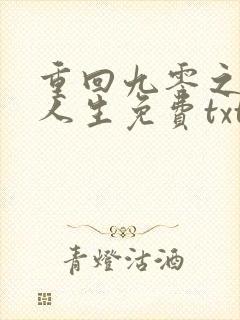 重回九零之
人生免费txt
青燈沽酒